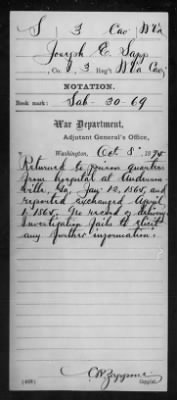 S 3 Cav W Va
Joseph E. Sapp
Co. , 3 Reg't W Va Cav
NOTATION.
Book mark: Sab-30-69
War Department,
Adjutant General's Office,
Washington, Oct 8, 1870
Returned to prison quarters
from hospital at Anderson
ville, Ga, Jan 12, 1865, and
reported exchanged April
1865. No record of
Investigation fails to elicit
any further information.
Copyist.